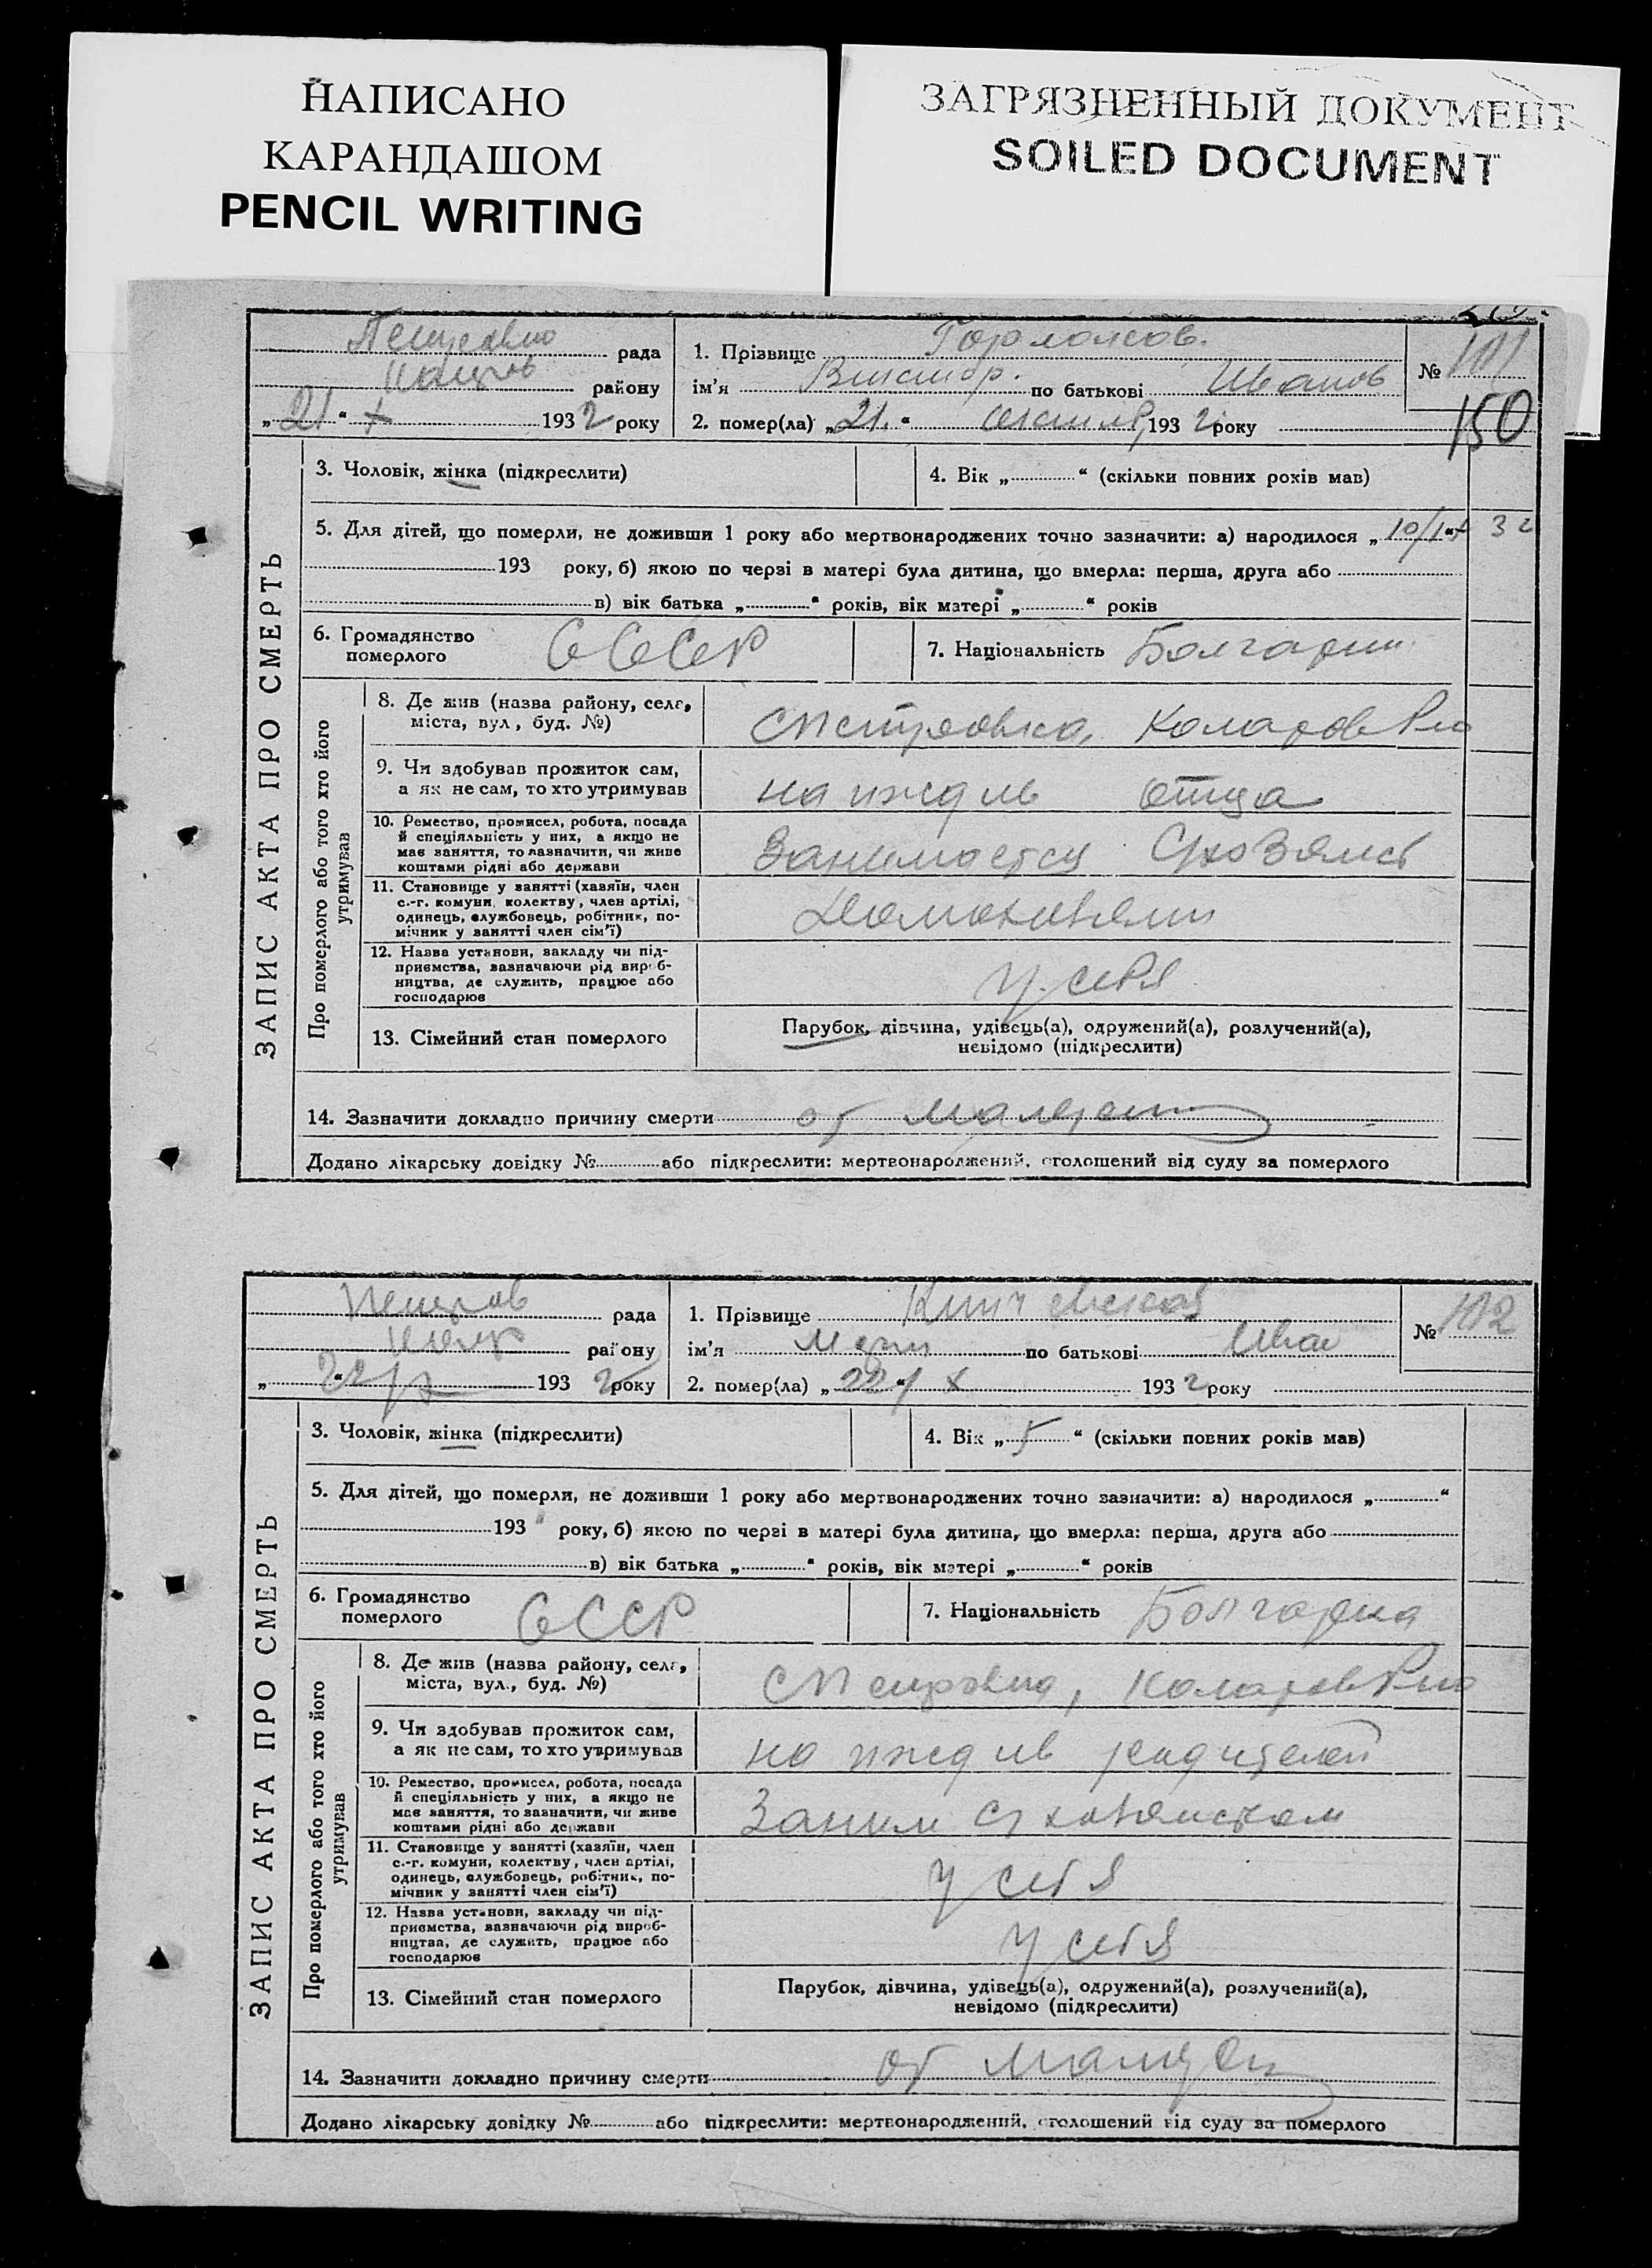 НАПИСАНО
КАРАНДАШОМ
PENCIL WRITING
ЗАГРЯЗНЕННЫЙ ДОКУМЕНТ
SOILED DOCUMENT
рада
району
„21“ X 1932 року
1. Прізвище
ім'я Виктор. по батькові Иванов
2. помер(ла) „21.“ 1932 року
№ 101
150
ЗАПИС АКТА ПРО СМЕРТЬ
3. Чоловік, жінка (підкреслити)
4. Вік „ “ (скільки повних років мав)
5. Для дітей, що померли, не доживши 1 року або мертвонароджених точно зазначити: а) народилося „10/ 32
193 року, б) якою по черзі в матері була дитина, що вмерла: перша, друга або
в) вік батька „ “ років, вік матері „ “ років
6. Громадянство померлого СССР
7. Національність Болгарин
Про померлого або того хто його утримував
8. Де жив (назва району, села,
міста, вул., буд. №)
с Петровка, Коларов
9. Чи здобував прожиток сам,
а як не сам, то хто утримував
на иждив отца
10. Ремество, промисел, робота, посада
й спеціяльність у них, а якщо не
має заняття, то зазначити, чи живе
коштами рідні або держави
Занимается
11. Становище у занятті (хазяїн, член
с.-г. комуни, колектву, член артілі,
одинець, службовець, робітник, по-
мічник у занятті член сім'ї)
12. Назва установи, закладу чи під-
приємства, зазначаючи рід вироб-
ництва, де служить, працює або
господарює
у себя
13. Сімейний стан померлого
Парубок, дівчина, удівець(а), одружений(а), розлучений(а),
невідомо (підкреслити)
14. Зазначити докладно причину смерти от
Додано лікарську довідку № або підкреслити: мертвонароджений, оголошений від суду за померлого
Петров рада
району
„22“/X 1932 року
1. Прізвище
ім'я по батькові Иван
2. помер(ла) „22“/ X 1932 року
№ 102
ЗАПИС АКТА ПРО СМЕРТЬ
3. Чоловік, жінка (підкреслити)
4. Вік „5“ (скільки повних років мав)
5. Для дітей, що померли, не доживши 1 року або мертвонароджених точно зазначити: а) народилося „ “
193 року, б) якою по черзі в матері була дитина, що вмерла: перша, друга або
в) вік батька „ “ років, вік матері „ “ років
6. Громадянство померлого СССР
7. Національність Болгарка
Про померлого або того хто його утримував
8. Де жив (назва району, села,
міста, вул., буд. №)
с Петровка, Коларов
9. Чи здобував прожиток сам,
а як не сам, то хто утримував
на иждив родителей
10. Ремество, промисел, робота, посада
й спеціяльність у них, а якщо не
має заняття, то зазначити, чи живе
коштами рідні або держави
Заним с хозяйством
11. Становище у занятті (хазяїн, член
с.-г. комуни, колектву, член артілі,
одинець, службовець, робітник, по-
мічник у занятті член сім'ї)
у себя
12. Назва установи, закладу чи під-
приємства, зазначаючи рід вироб-
ництва, де служить, працює або
господарює
у себя
13. Сімейний стан померлого
Парубок, дівчина, удівець(а), одружений(а), розлучений(а),
невідомо (підкреслити)
14. Зазначити докладно причину смерти от
Додано лікарську довідку № або підкреслити: мертвонароджений, оголошений від суду за померлого